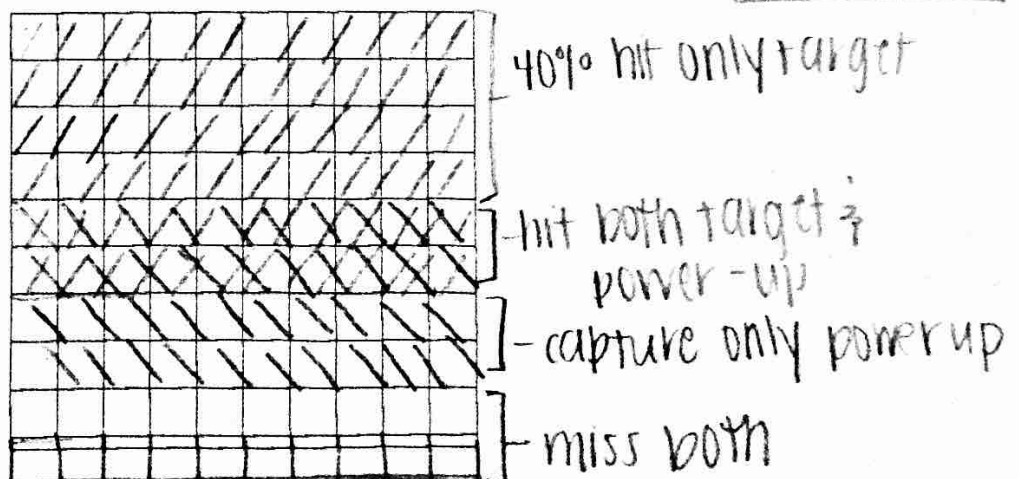 40% hit only target
-hit both target &
power-up
-capture only powerup
- miss both